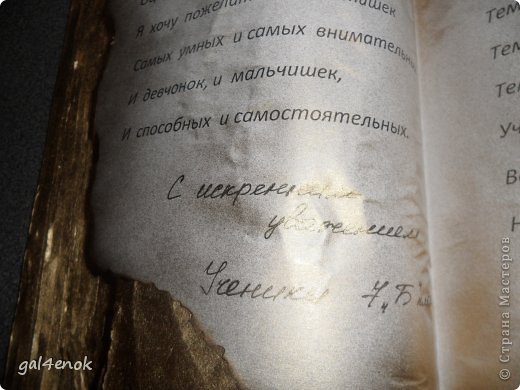 Я хочу
Самых умных и самых внимательн
И девчонок, и мальчишек,
И способных и самостоятельных.
С искренним
уважением
Ученики 7 „Б"
Тем
Тем
Те
Уч
В
Н
gal4enok
© Страна Мастеров